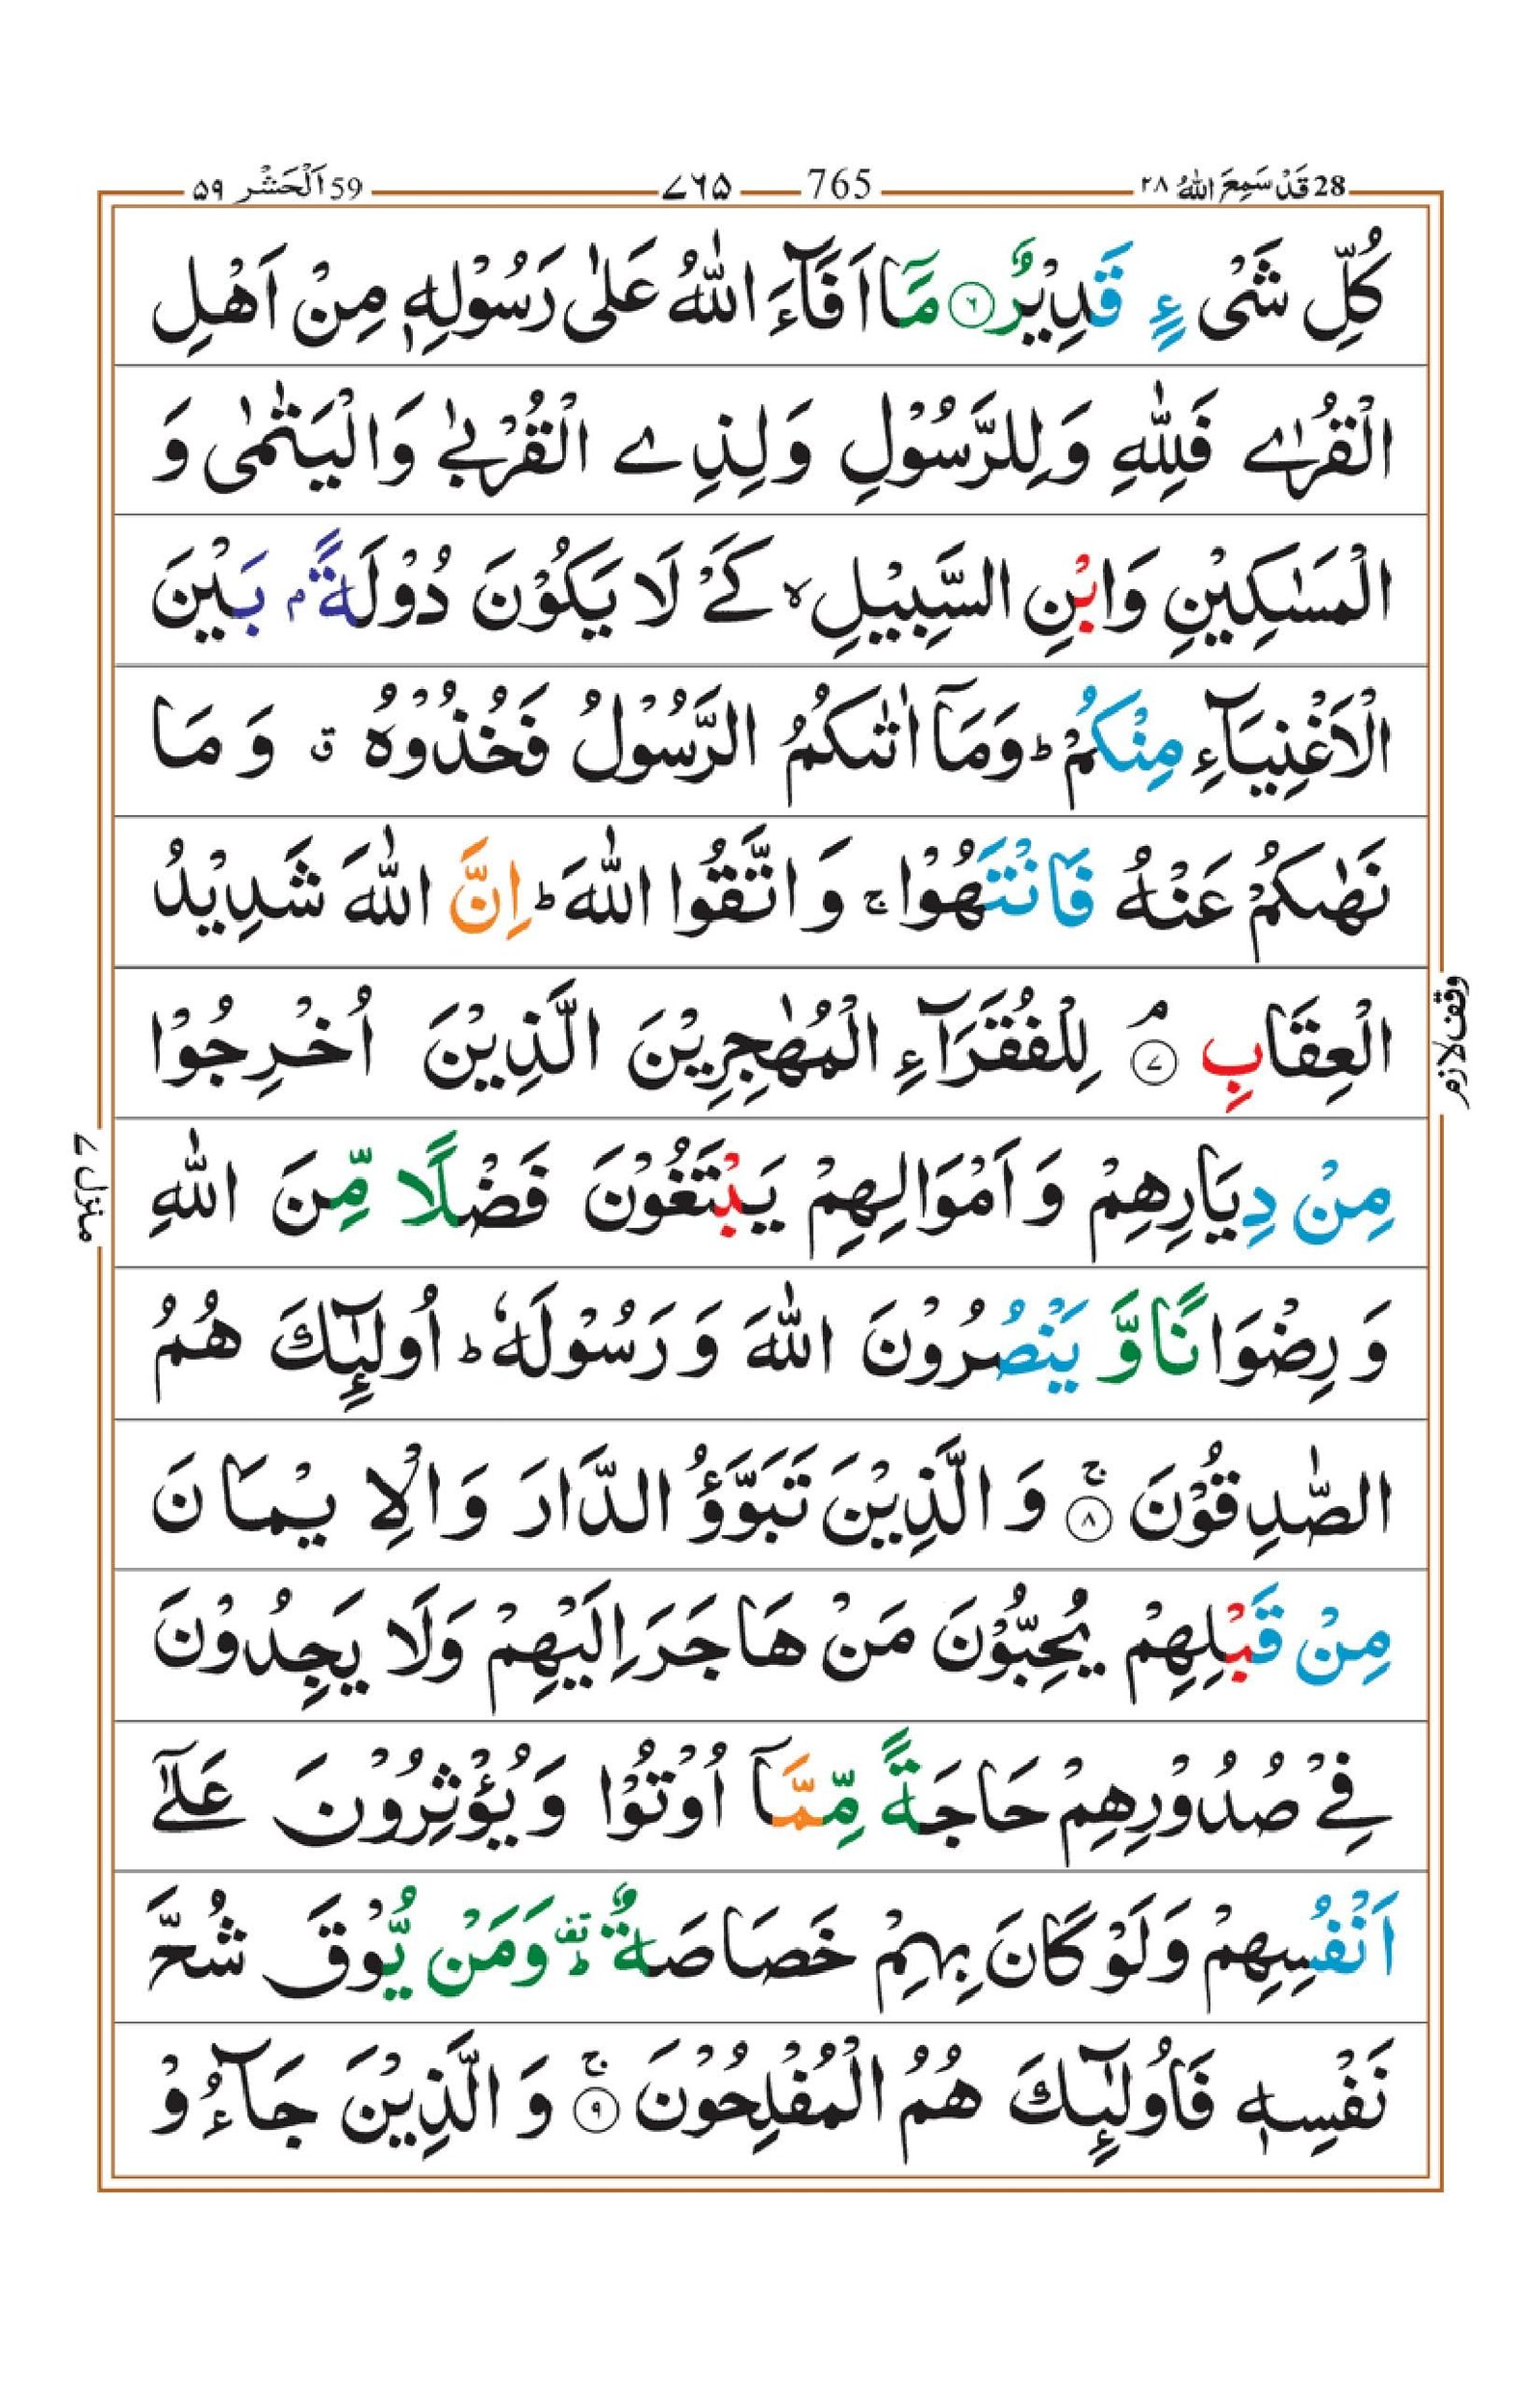 28 قَدْ سَمِعَ اللّٰهُ ٢٨ 765 ۷۶۵ 59 اَلْحَشْر ۵۹
كُلِّ شَیْءٍ قَدِیْرٌ ۶ مَاۤ اَفَآءَ اللّٰهُ عَلٰی رَسُوْلِهٖ مِنْ اَهْلِ
الْقُرٰی فَلِلّٰهِ وَ لِلرَّسُوْلِ وَ لِذِی الْقُرْبٰی وَ الْیَتٰمٰی وَ
الْمَسٰكِیْنِ وَ ابْنِ السَّبِیْلِ ۙ كَیْ لَا یَكُوْنَ دُوْلَةًۢ بَیْنَ
الْاَغْنِیَآءِ مِنْكُمْ ؕ وَ مَاۤ اٰتٰىكُمُ الرَّسُوْلُ فَخُذُوْهُ ۗ وَ مَا
نَهٰىكُمْ عَنْهُ فَانْتَهُوْا ۚ وَ اتَّقُوا اللّٰهَ ؕ اِنَّ اللّٰهَ شَدِیْدُ
الْعِقَابِ ۘ ۷ لِلْفُقَرَآءِ الْمُهٰجِرِیْنَ الَّذِیْنَ اُخْرِجُوْا
وقف لازم
مِنْ دِیَارِهِمْ وَ اَمْوَالِهِمْ یَبْتَغُوْنَ فَضْلًا مِّنَ اللّٰهِ
منزل ۷
وَ رِضْوَانًا وَّ یَنْصُرُوْنَ اللّٰهَ وَ رَسُوْلَهٗ ؕ اُولٰٓئِكَ هُمُ
الصّٰدِقُوْنَ ۚ ۸ وَ الَّذِیْنَ تَبَوَّؤُ الدَّارَ وَ الْاِیْمَانَ
مِنْ قَبْلِهِمْ یُحِبُّوْنَ مَنْ هَاجَرَ اِلَیْهِمْ وَ لَا یَجِدُوْنَ
فِیْ صُدُوْرِهِمْ حَاجَةً مِّمَّاۤ اُوْتُوْا وَ یُؤْثِرُوْنَ عَلٰۤی
اَنْفُسِهِمْ وَ لَوْ كَانَ بِهِمْ خَصَاصَةٌ ؕ۫ وَ مَنْ یُّوْقَ شُحَّ
نَفْسِهٖ فَاُولٰٓئِكَ هُمُ الْمُفْلِحُوْنَ ۚ ۹ وَ الَّذِیْنَ جَآءُوْ